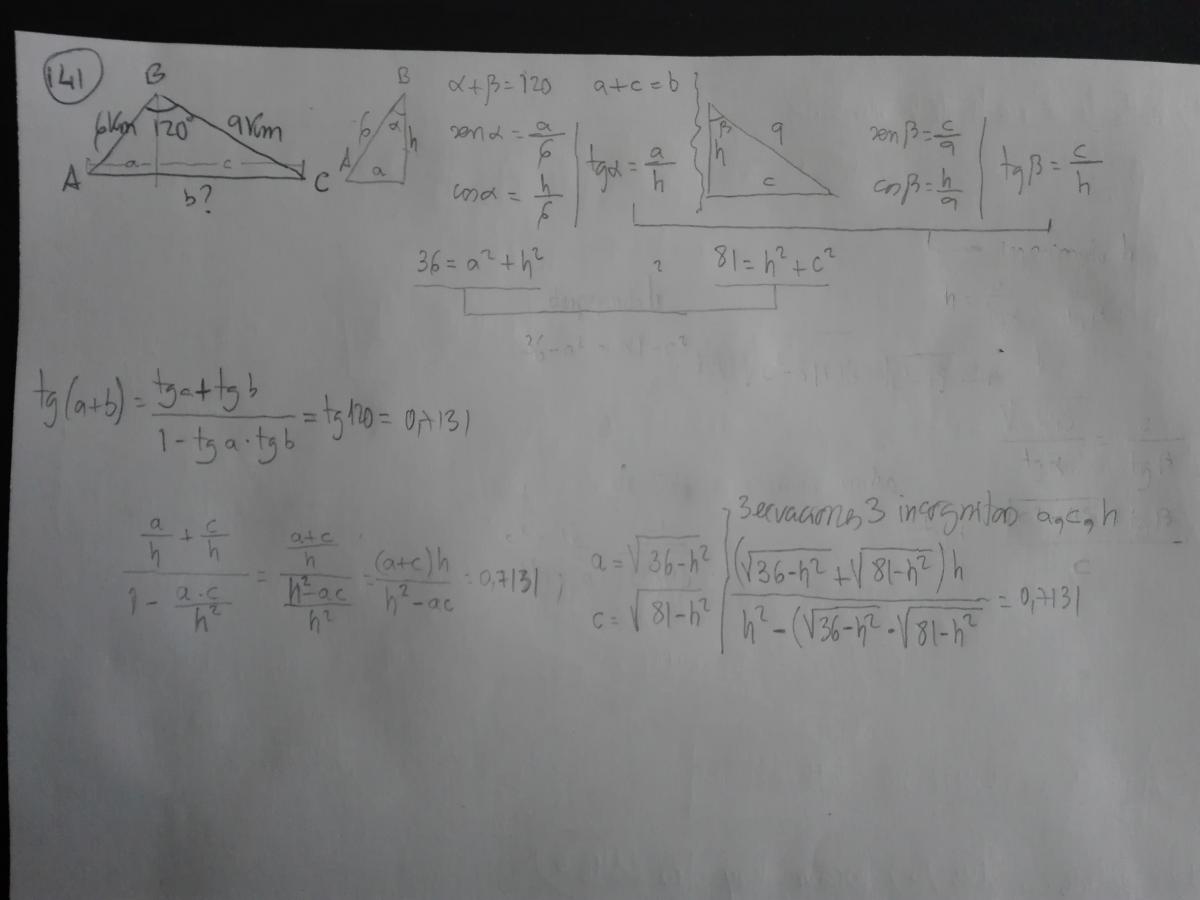 141
B
6Km 120° 9Km
a c
A C
b?
B
6 α h
A
a
α+β=120 a+c=b
sen α = a/6
cos α = h/6
tg α = a/h
β 9
h
c
sen β = c/9
cos β = h/9
tg β = c/h
36 = a² + h² ² 81 = h² + c²
tg(a+b) = (tg a + tg b)/(1 - tg a · tg b) = tg 120 = 0,7131
(a/h + c/h)/(1 - a·c/h²) = ((a+c)/h)/((h²-ac)/h²) = (a+c)h/(h²-ac) = 0,7131 ;
a = √36-h²
c = √81-h²
3 ecuaciones 3 incognitas a, c, h
(√36-h² + √81-h²) h/h² - (√36-h² · √81-h² = 0,7131